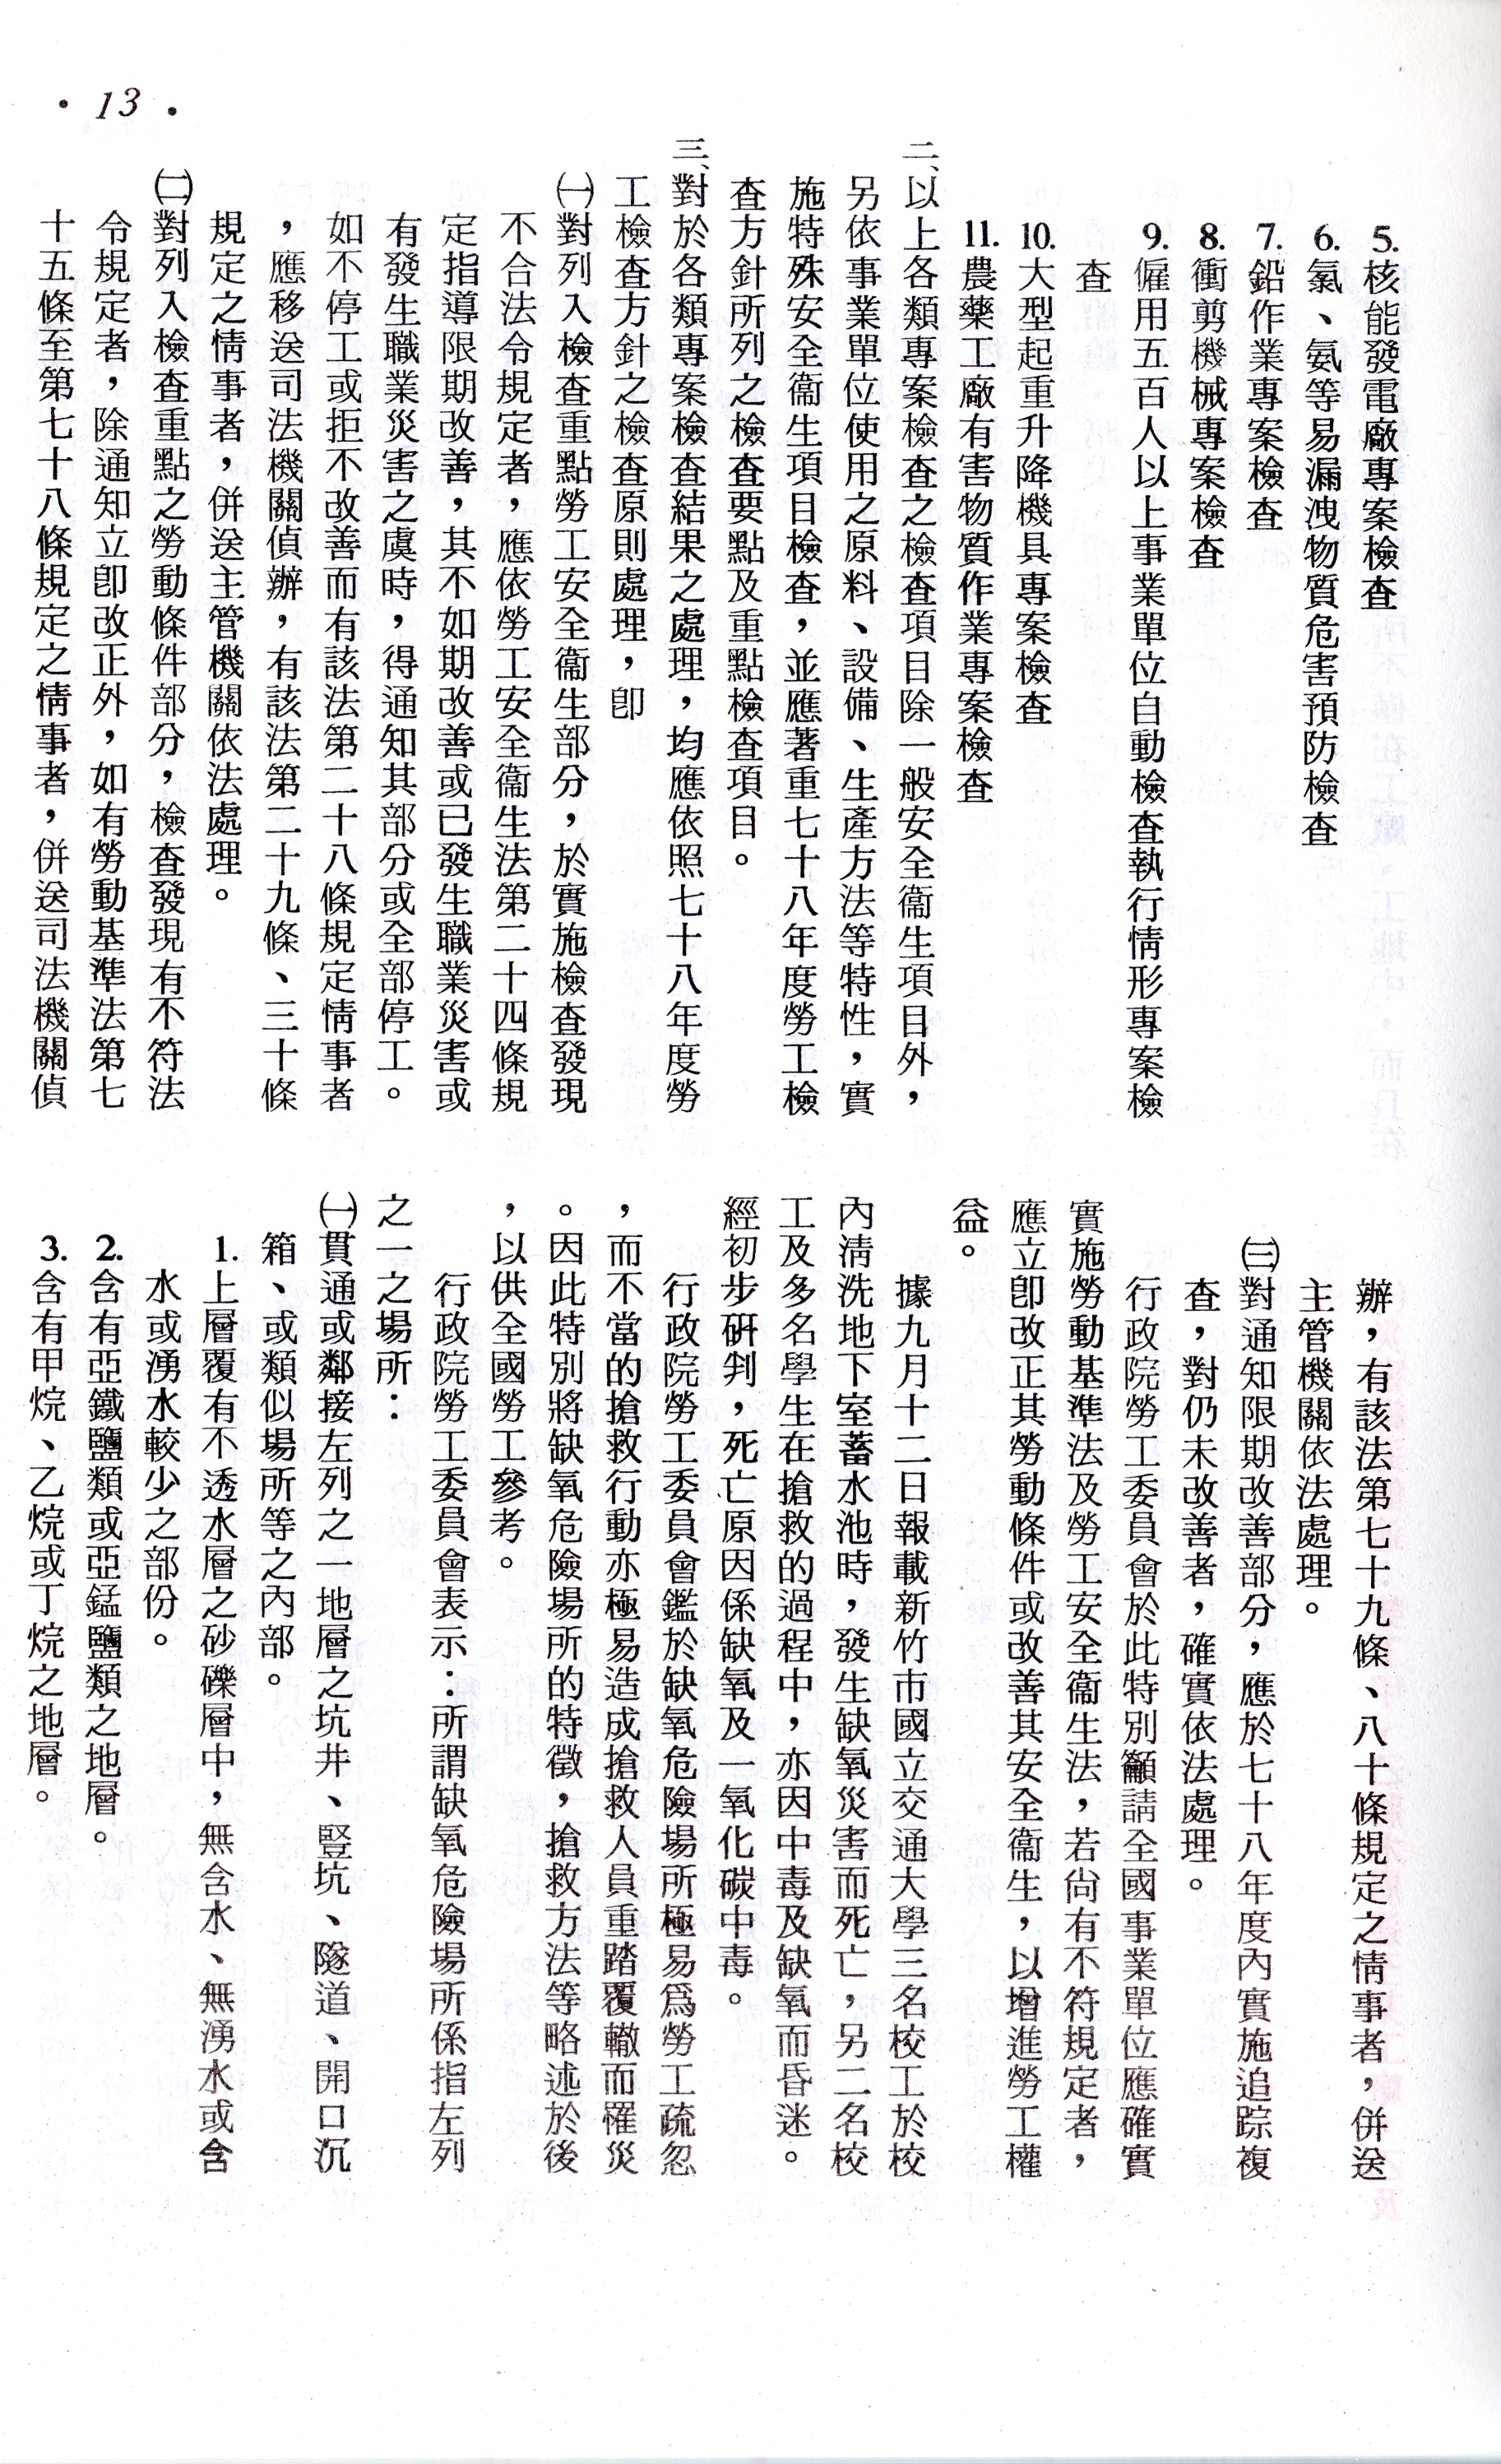 • 13 •
5.核能發電廠專案檢查
6.氯、氨等易漏洩物質危害預防檢查
7.鉛作業專案檢查
8.衝剪機械專案檢查
9.僱用五百人以上事業單位自動檢查執行情形專案檢
查
10.大型起重升降機具專案檢查
11.農藥工廠有害物質作業專案檢查
二、以上各類專案檢查之檢查項目除一般安全衞生項目外，
另依事業單位使用之原料、設備、生產方法等特性，實
施特殊安全衞生項目檢查，並應著重七十八年度勞工檢
查方針所列之檢查要點及重點檢查項目。
三、對於各類專案檢查結果之處理，均應依照七十八年度勞
工檢查方針之檢查原則處理，卽
㈠對列入檢查重點勞工安全衞生部分，於實施檢查發現
不合法令規定者，應依勞工安全衞生法第二十四條規
定指導限期改善，其不如期改善或已發生職業災害或
有發生職業災害之虞時，得通知其部分或全部停工。
如不停工或拒不改善而有該法第二十八條規定情事者
，應移送司法機關偵辦，有該法第二十九條、三十條
規定之情事者，併送主管機關依法處理。
㈡對列入檢查重點之勞動條件部分，檢查發現有不符法
令規定者，除通知立卽改正外，如有勞動基準法第七
十五條至第七十八條規定之情事者，併送司法機關偵
辦，有該法第七十九條、八十條規定之情事者，併送
主管機關依法處理。
㈢對通知限期改善部分，應於七十八年度內實施追踪複
查，對仍未改善者，確實依法處理。
行政院勞工委員會於此特別籲請全國事業單位應確實
實施勞動基準法及勞工安全衞生法，若尙有不符規定者，
應立卽改正其勞動條件或改善其安全衞生，以增進勞工權
益。
據九月十二日報載新竹市國立交通大學三名校工於校
內淸洗地下室蓄水池時，發生缺氧災害而死亡，另二名校
工及多名學生在搶救的過程中，亦因中毒及缺氧而昏迷。
經初步硏判，死亡原因係缺氧及一氧化碳中毒。
行政院勞工委員會鑑於缺氧危險場所極易爲勞工疏忽
，而不當的搶救行動亦極易造成搶救人員重踏覆轍而罹災
。因此特別將缺氧危險場所的特徵，搶救方法等略述於後
，以供全國勞工參考。
行政院勞工委員會表示：所謂缺氧危險場所係指左列
之一之場所：
㈠貫通或鄰接左列之一地層之坑井、豎坑、隧道、開口沉
箱、或類似場所等之內部。
1.上層覆有不透水層之砂礫層中，無含水、無湧水或含
水或湧水較少之部份。
2.含有亞鐵鹽類或亞錳鹽類之地層。
3.含有甲烷、乙烷或丁烷之地層。